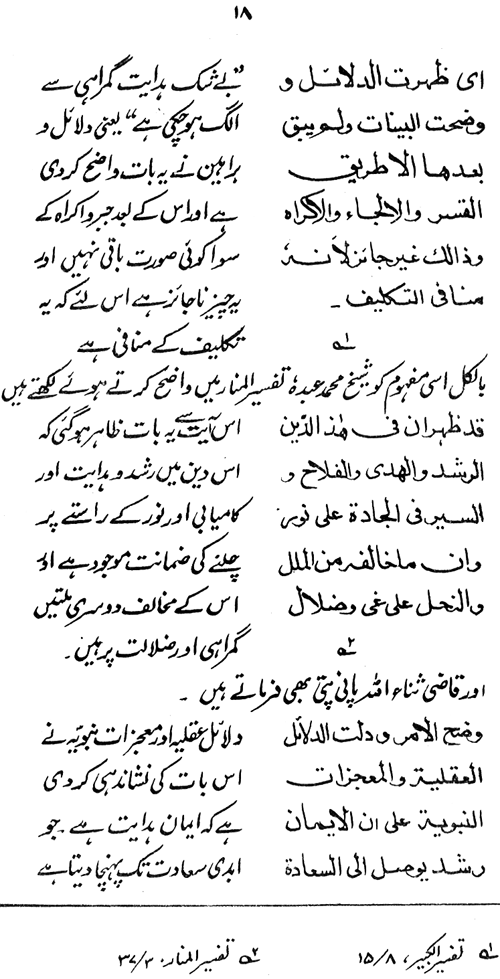 ۱۸
ای ظهرت الدلائل و
وضحت البینات ولو یبق
بعدها الا طریق
القسر والالجاء والاکراه
وذالک غیر جائز لأنه
منافی التکلیف ۔
۱؎
”بے شک ہدایت گمراہی سے
الگ ہوچکی ہے“ یعنی دلائل و
براہین نے یہ بات واضح کردی
ہے اور اس کے بعد جبر و اکراہ کے
سوا کوئی صورت باقی نہیں اور
یہ چیز ناجائز ہے اس لئے کہ یہ
تکلیف کے منافی ہے
بالکل اسی مفہوم کو شیخ محمد عبدہٗ تفسیر المنار میں واضح کرتے ہوئے لکھتے ہیں
قد ظهر ان فی هٰذا الدّین
الرشد والهدی والفلاح و
السیر فی الجادة علی نور
وان ما خالفه من الملل
والنحل علی غی وضلال
۲؎
اس آیت سے یہ بات ظاہر ہوگئی کہ
اس دین میں رشد و ہدایت اور
کامیابی اور نور کے راستے پر
چلنے کی ضمانت موجود ہے اور
اس کے مخالف دوسری ملتیں
گمراہی اور ضلالت پر ہیں۔
اور قاضی ثناء اللہ پانی پتی بھی فرماتے ہیں ۔
وضح الامر و دلت الدلائل
العقلیة والمعجزات
النبویة علی ان الایمان
رشد یوصل الی السعادة
دلائل عقلیہ اور معجزات نبویہ نے
اس بات کی نشاندہی کردی
ہے کہ ایمان ہدایت ہے ۔ جو
ابدی سعادت تک پہنچا دیتا ہے
۱؎ تفسیر الکبیر، ۱۵/۸
۲؎ تفسیر المنار: ۳۷/۳